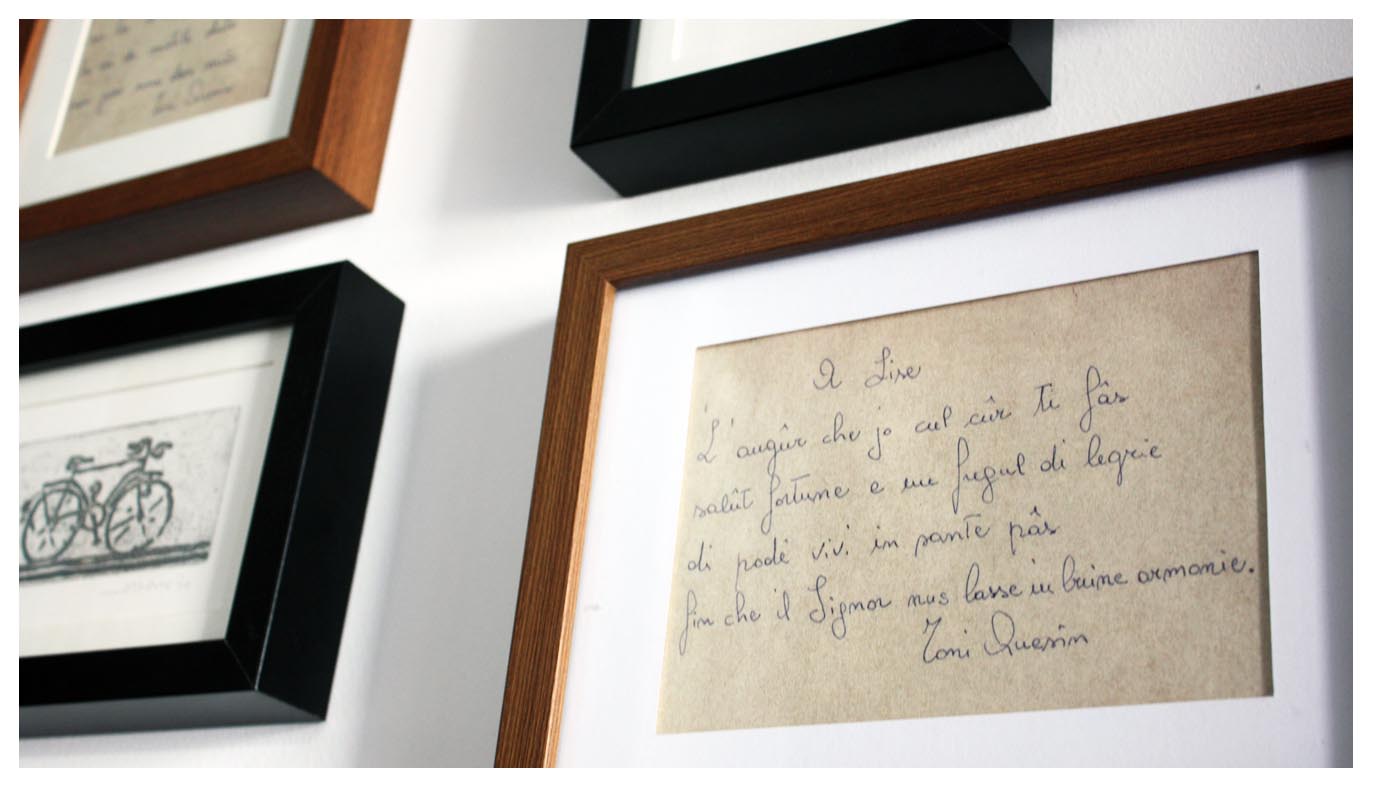 A Lise
L'augûr che jo cul cûr ti fâs
salût fortune e un fregul di legrie
di podê vivi in sante pâs
fin che il Signor nus lasse in buine armonie.
Toni